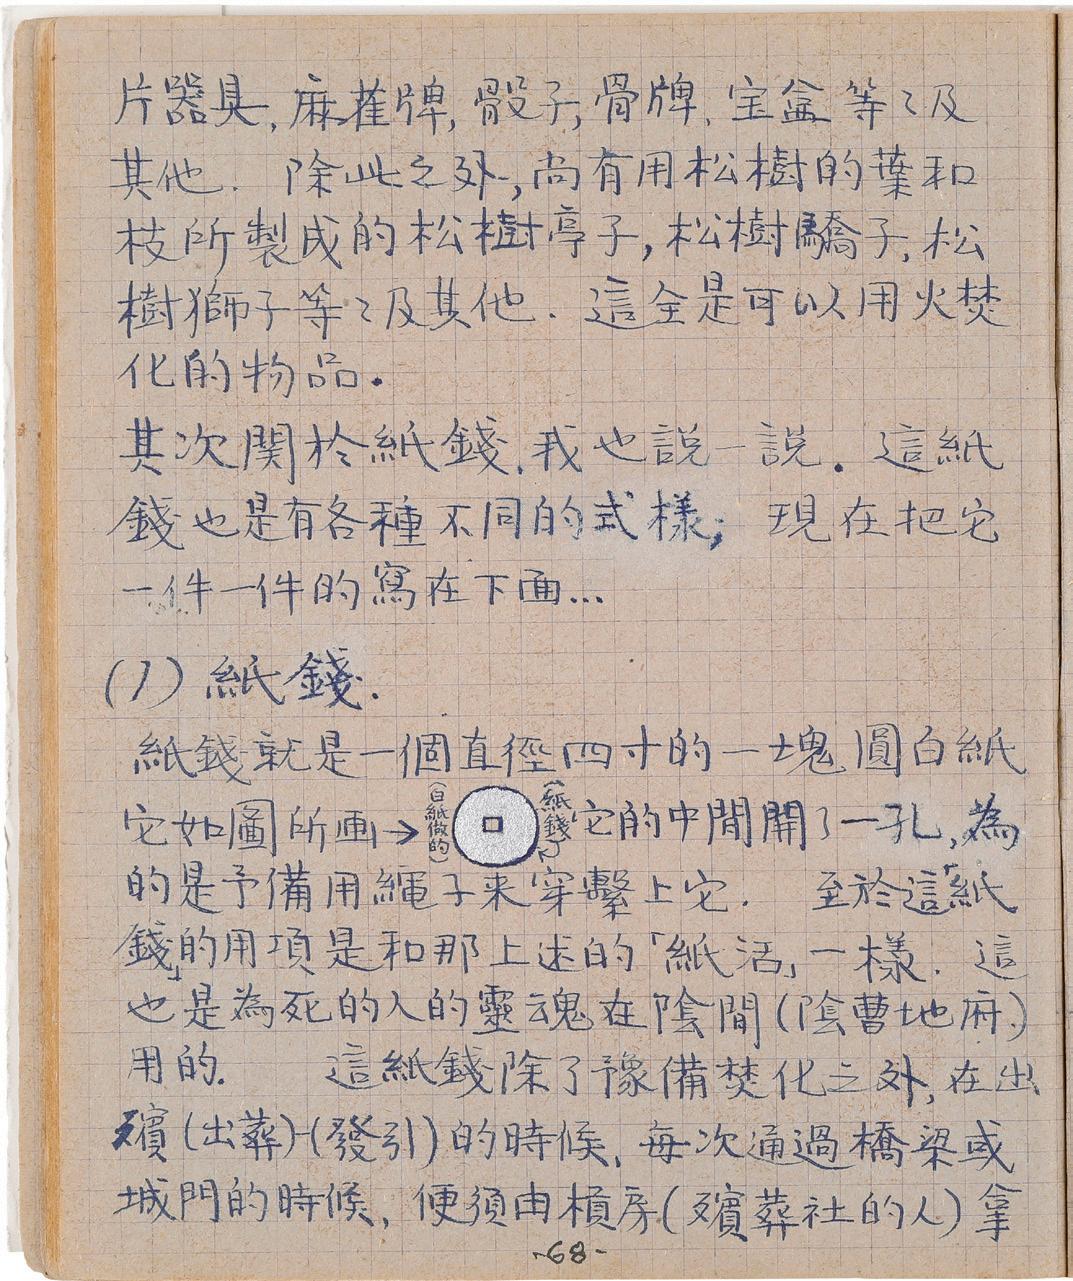 片器具, 麻雀牌, 骰子, 骨牌, 宝盒 等々及
其他. 除此之外, 尚有用松樹的葉和
枝所製成的松樹亭子, 松樹驕子, 松
樹獅子等々及其他. 這全是可以用火焚
化的物品.
其次関於紙錢, 我也說一說. 這紙
錢也是有各種不同的式樣; 現在把它
一件一件的寫在下面...
(1) 紙錢.
紙錢就是一個直徑四寸的一塊圓白紙
它如圖所画→ (白紙做的) (紙錢) 它的中間開了一孔, 為
的是予備用繩子来穿繫上它. 至於這「紙
錢」的用項是和那上述的「紙活」一樣. 這
也是為死的人的靈魂在陰間(陰曹地府)
用的. 這紙錢除了豫備焚化之外, 在出
殯(出葬)-(發引)的時候, 每次通過橋梁或
城門的時候, 便須由槓房(殯葬社的人)拿
-68-